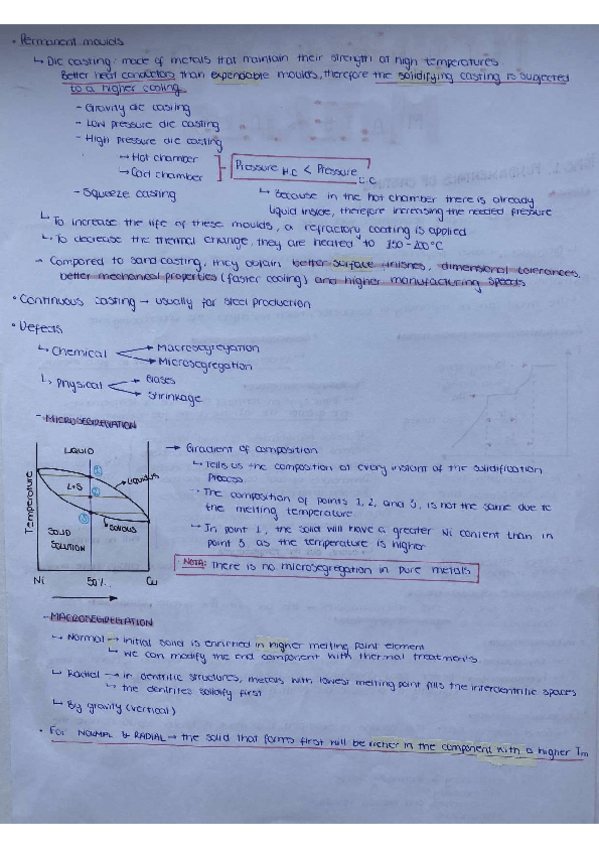 • Permanent moulds
↳ Die casting: made of metals that maintain their strength at high temperatures.
Better heat conductors than expendable moulds, therefore the solidifying casting is subjected
to a higher cooling.
- Gravity die casting
- Low pressure die casting
- High pressure die casting
→ Hot chamber
→ Cold chamber
Pressure H.C < Pressure C.C
- Squeeze casting
↳ Because in the hot chamber there is already
liquid inside, therefore increasing the needed pressure
↳ To increase the life of these moulds, a refractory coating is applied
↳ To decrease the thermal change, they are heated to 150-200°C
→ Compared to sand casting, they obtain better surface finishes, dimensional tolerances,
better mechanical properties (faster cooling) and higher manufacturing speeds
• Continuous casting → usually for steel production
• Defects
↳ Chemical
→ Macrosegregation
→ Microsegregation
↳ Physical
→ Gases
→ Shrinkage
- MICROSEGREGATION
Temperature
LIQUID
L+S
LIQUIDUS
SOLIDUS
SOLID
SOLUTION
1
2
3
Ni 50% Cu
→ Gradient of composition
↳ Tells us the composition at every instant of the solidification
process.
- The composition of points 1, 2, and 3, is not the same due to
the melting temperature.
↳ In point 1, the solid will have a greater Ni content than in
point 3 as the temperature is higher
NOTA: There is no microsegregation in pure metals
- MACROSEGREGATION
↳ Normal → initial solid is enriched in higher melting point element
↳ we can modify the end component with thermal treatments.
↳ Radial → in dentritic structures, metals with lowest melting point fills the interdentritic spaces
↳ the dentrites solidify first
↳ By gravity (vertical)
• For NORMAL & RADIAL → the solid that forms first will be richer in the component with a higher Tm